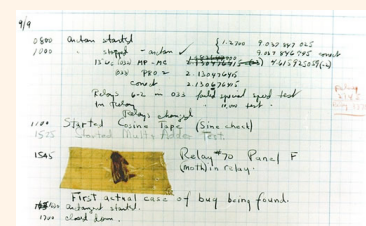 9/9
0800 Antan started { 1.2700 9.037 847 025
1000 " stopped - antan ✓ 9.037 846 995 correct
13"uc (032) MP-MC 4.615925059(-2)
(033) PRO 2 2.130476415
correct 2.130676415
Relays 6-2 in 033 failed special speed test
in relay " 11.00 test.
Relays changed
1100 Started Cosine Tape (Sine check)
1525 Started Multi Adder Test.
1545 Relay #70 Panel F
(moth) in relay.
First actual case of bug being found.
antangent started.
1700 closed down.